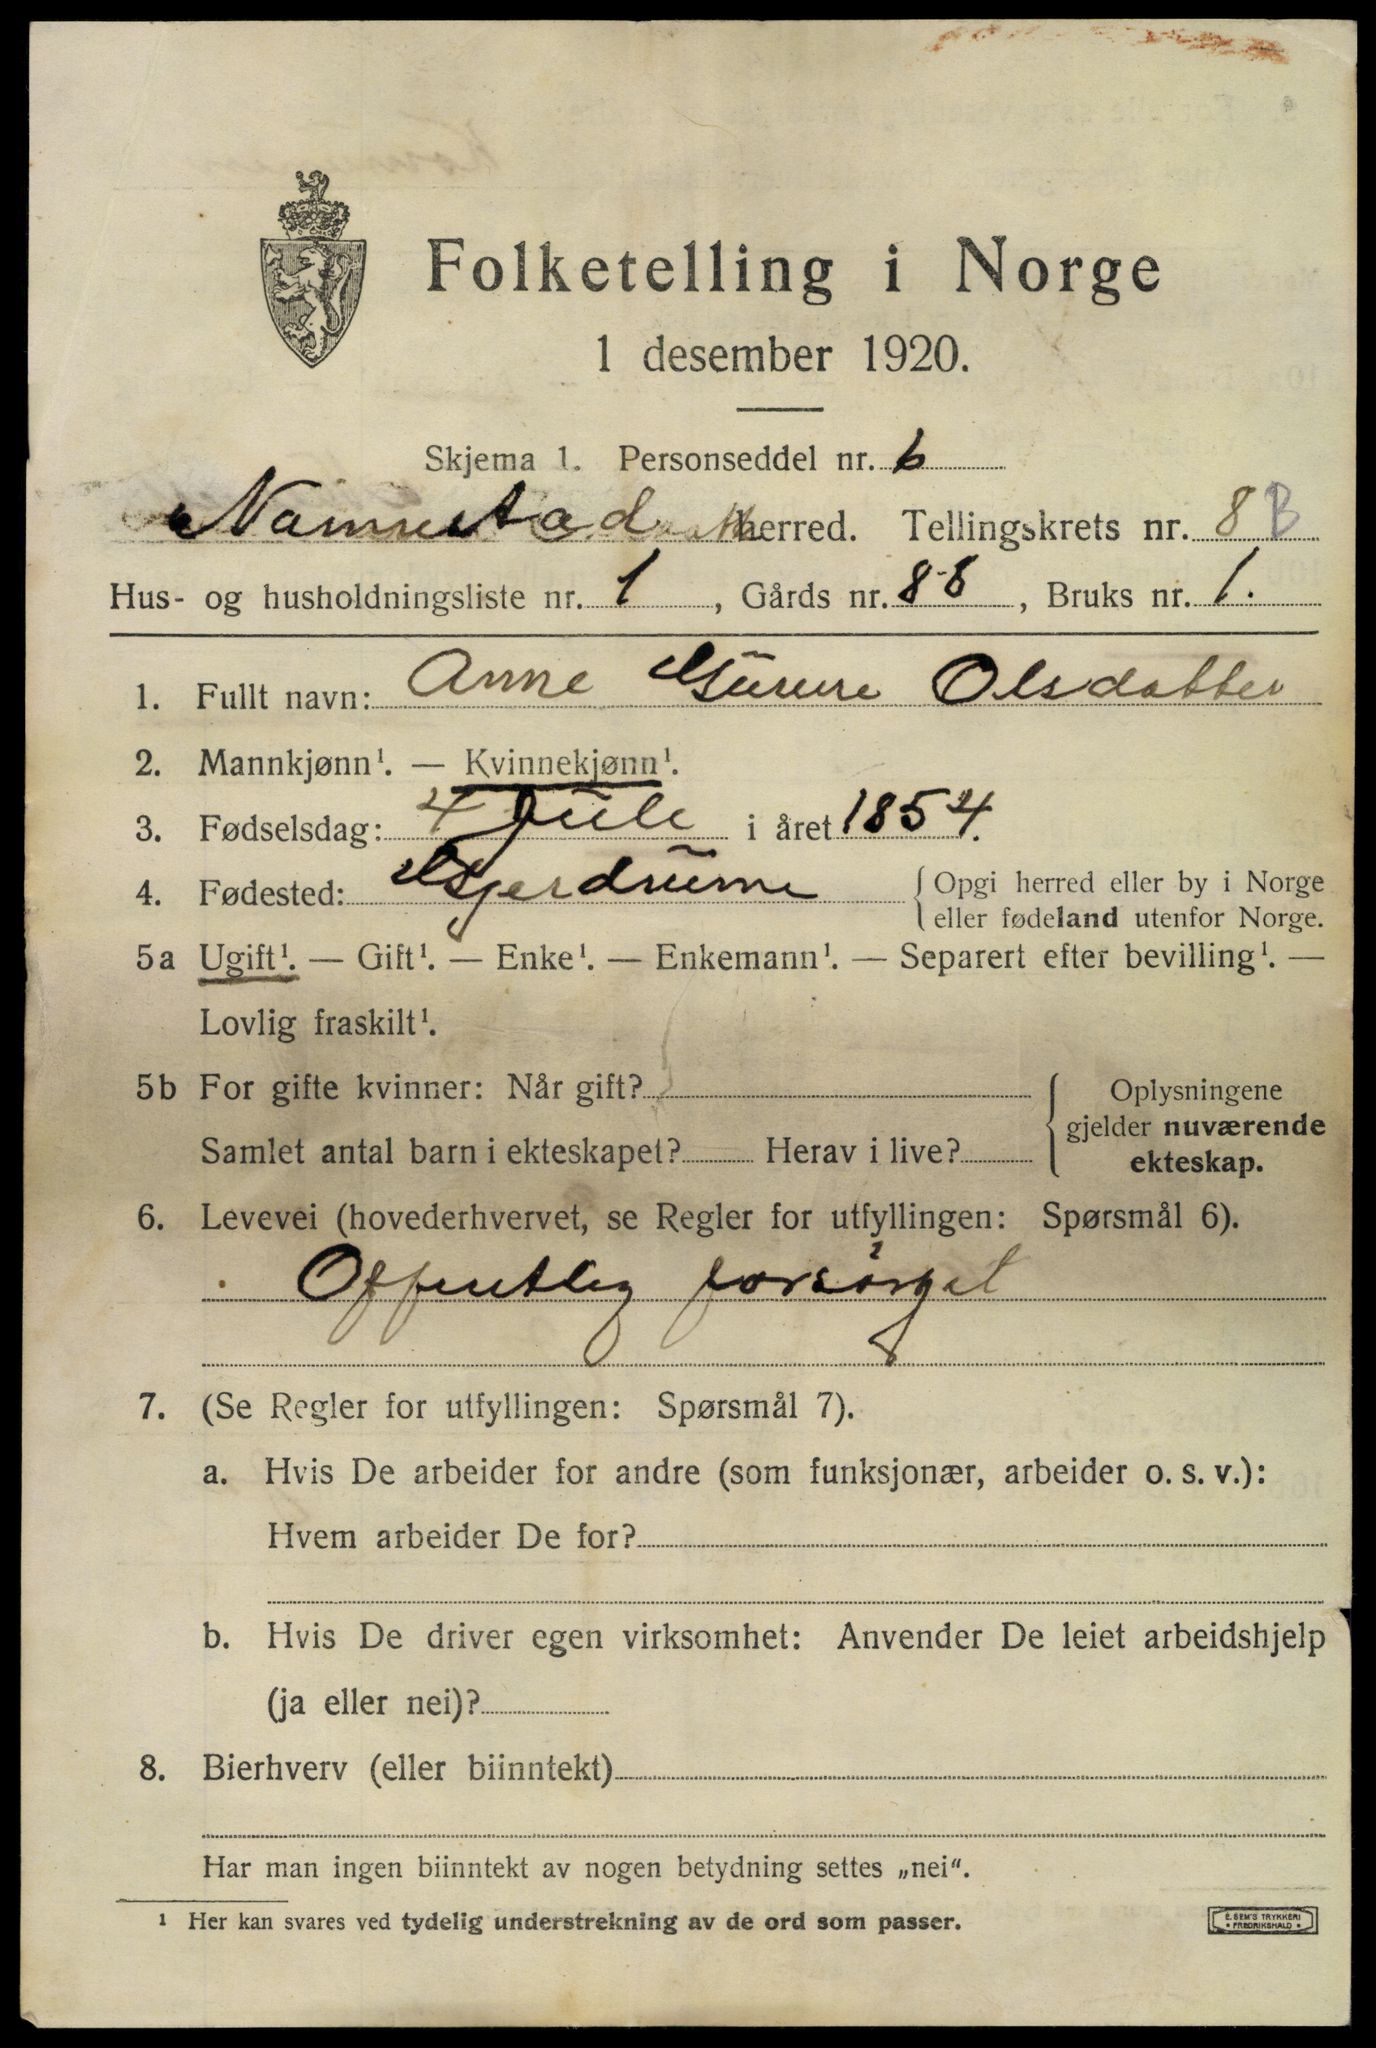 Folketelling i Norge
1 desember 1920.
Skjema 1. Personseddel nr. 6
Nannestad herred. Tellingskrets nr. 8 B
Hus- og husholdningsliste nr. 1, Gårds nr. 88, Bruks nr. 1.
1. Fullt navn: Anne Olsdatter
2. Mannkjønn¹. — Kvinnekjønn¹.
3. Fødselsdag: 4 Juli i året 1854.
4. Fødested: Gjerdrum {Opgi herred eller by i Norge
eller fødeland utenfor Norge.
5a Ugift¹. — Gift¹. — Enke¹. — Enkemann¹. — Separert efter bevilling¹. —
Lovlig fraskilt¹.
5b For gifte kvinner: Når gift?
Samlet antal barn i ekteskapet? Herav i live?
Oplysningene
gjelder nuværende
ekteskap.
6. Levevei (hovederhvervet, se Regler for utfyllingen: Spørsmål 6).
Offentlig forsørget
7. (Se Regler for utfyllingen: Spørsmål 7).
a. Hvis De arbeider for andre (som funksjonær, arbeider o. s. v.):
Hvem arbeider De for?
b. Hvis De driver egen virksomhet: Anvender De leiet arbeidshjelp
(ja eller nei)?
8. Bierhverv (eller biinntekt)
Har man ingen biinntekt av nogen betydning settes „nei“.
¹ Her kan svares ved tydelig understrekning av de ord som passer.
E. SEM'S TRYKKERI
* FREDRIKSHALD *